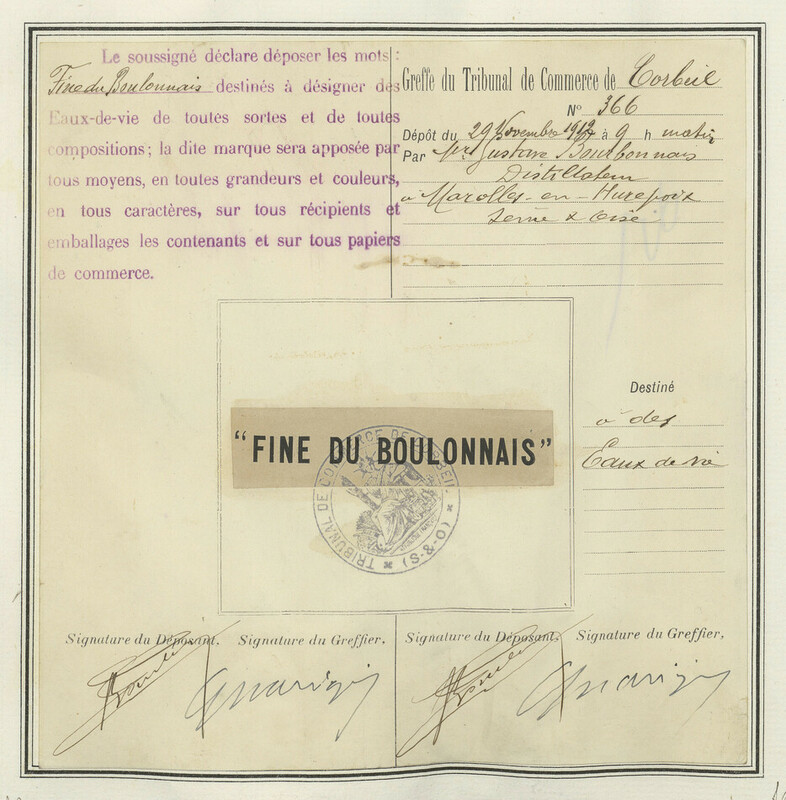 Le soussigné déclare déposer les mots :
Fine du Boulonnais destinés à désigner des
Eaux-de-vie de toutes sortes et de toutes
compositions ; la dite marque sera apposée par
tous moyens, en toutes grandeurs et couleurs,
en tous caractères, sur tous récipients et
emballages les contenants et sur tous papiers
de commerce.
Greffe du Tribunal de Commerce de Corbeil
N° 366
Dépôt du 29 Novembre à 9 h matin
Par Mr Gustave Bourbonnais
Distillateur
à Marolles-en-Hurepoix
Seine & Oise
"FINE DU BOULONNAIS"
TRIBUNAL DE COMMERCE DE CORBEIL (O-&-S)
Destiné
à des
Eaux de vie
Signature du Déposant, Signature du Greffier,
Signature du Déposant, Signature du Greffier,